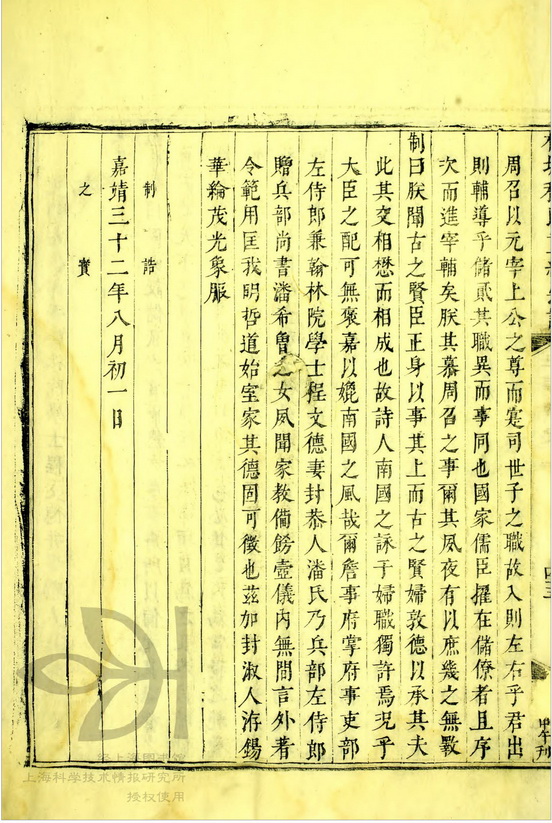 周召以元宰上公之尊而寔司世子之職故入則左右乎君出
則輔導乎儲貳其職異而事同也國家儒臣擢在儲僚者且序
次而進宰輔矣朕其慕周召之事爾其夙夜有以庶幾之無斁
制曰朕聞古之賢臣正身以事其上而古之賢婦敦德以承其夫
此其交相懋而相成也故詩人南國之詠于婦職獨許焉况乎
大臣之配可無褒嘉以媲南國之風哉爾詹事府掌府事吏部
左侍郎兼翰林院學士程文德妻封恭人潘氏乃兵部左侍郎
贈兵部尚書潘希曾之女夙聞家教備飭壼儀内無間言外著
令範用匡我明哲道始室家其德固可徵也茲加封淑人洊錫
華綸茂光象服
制誥
嘉靖三十二年八月初一日
之寶
甲午刊
上海圖書館
上海科学技术情报研究所
授权使用